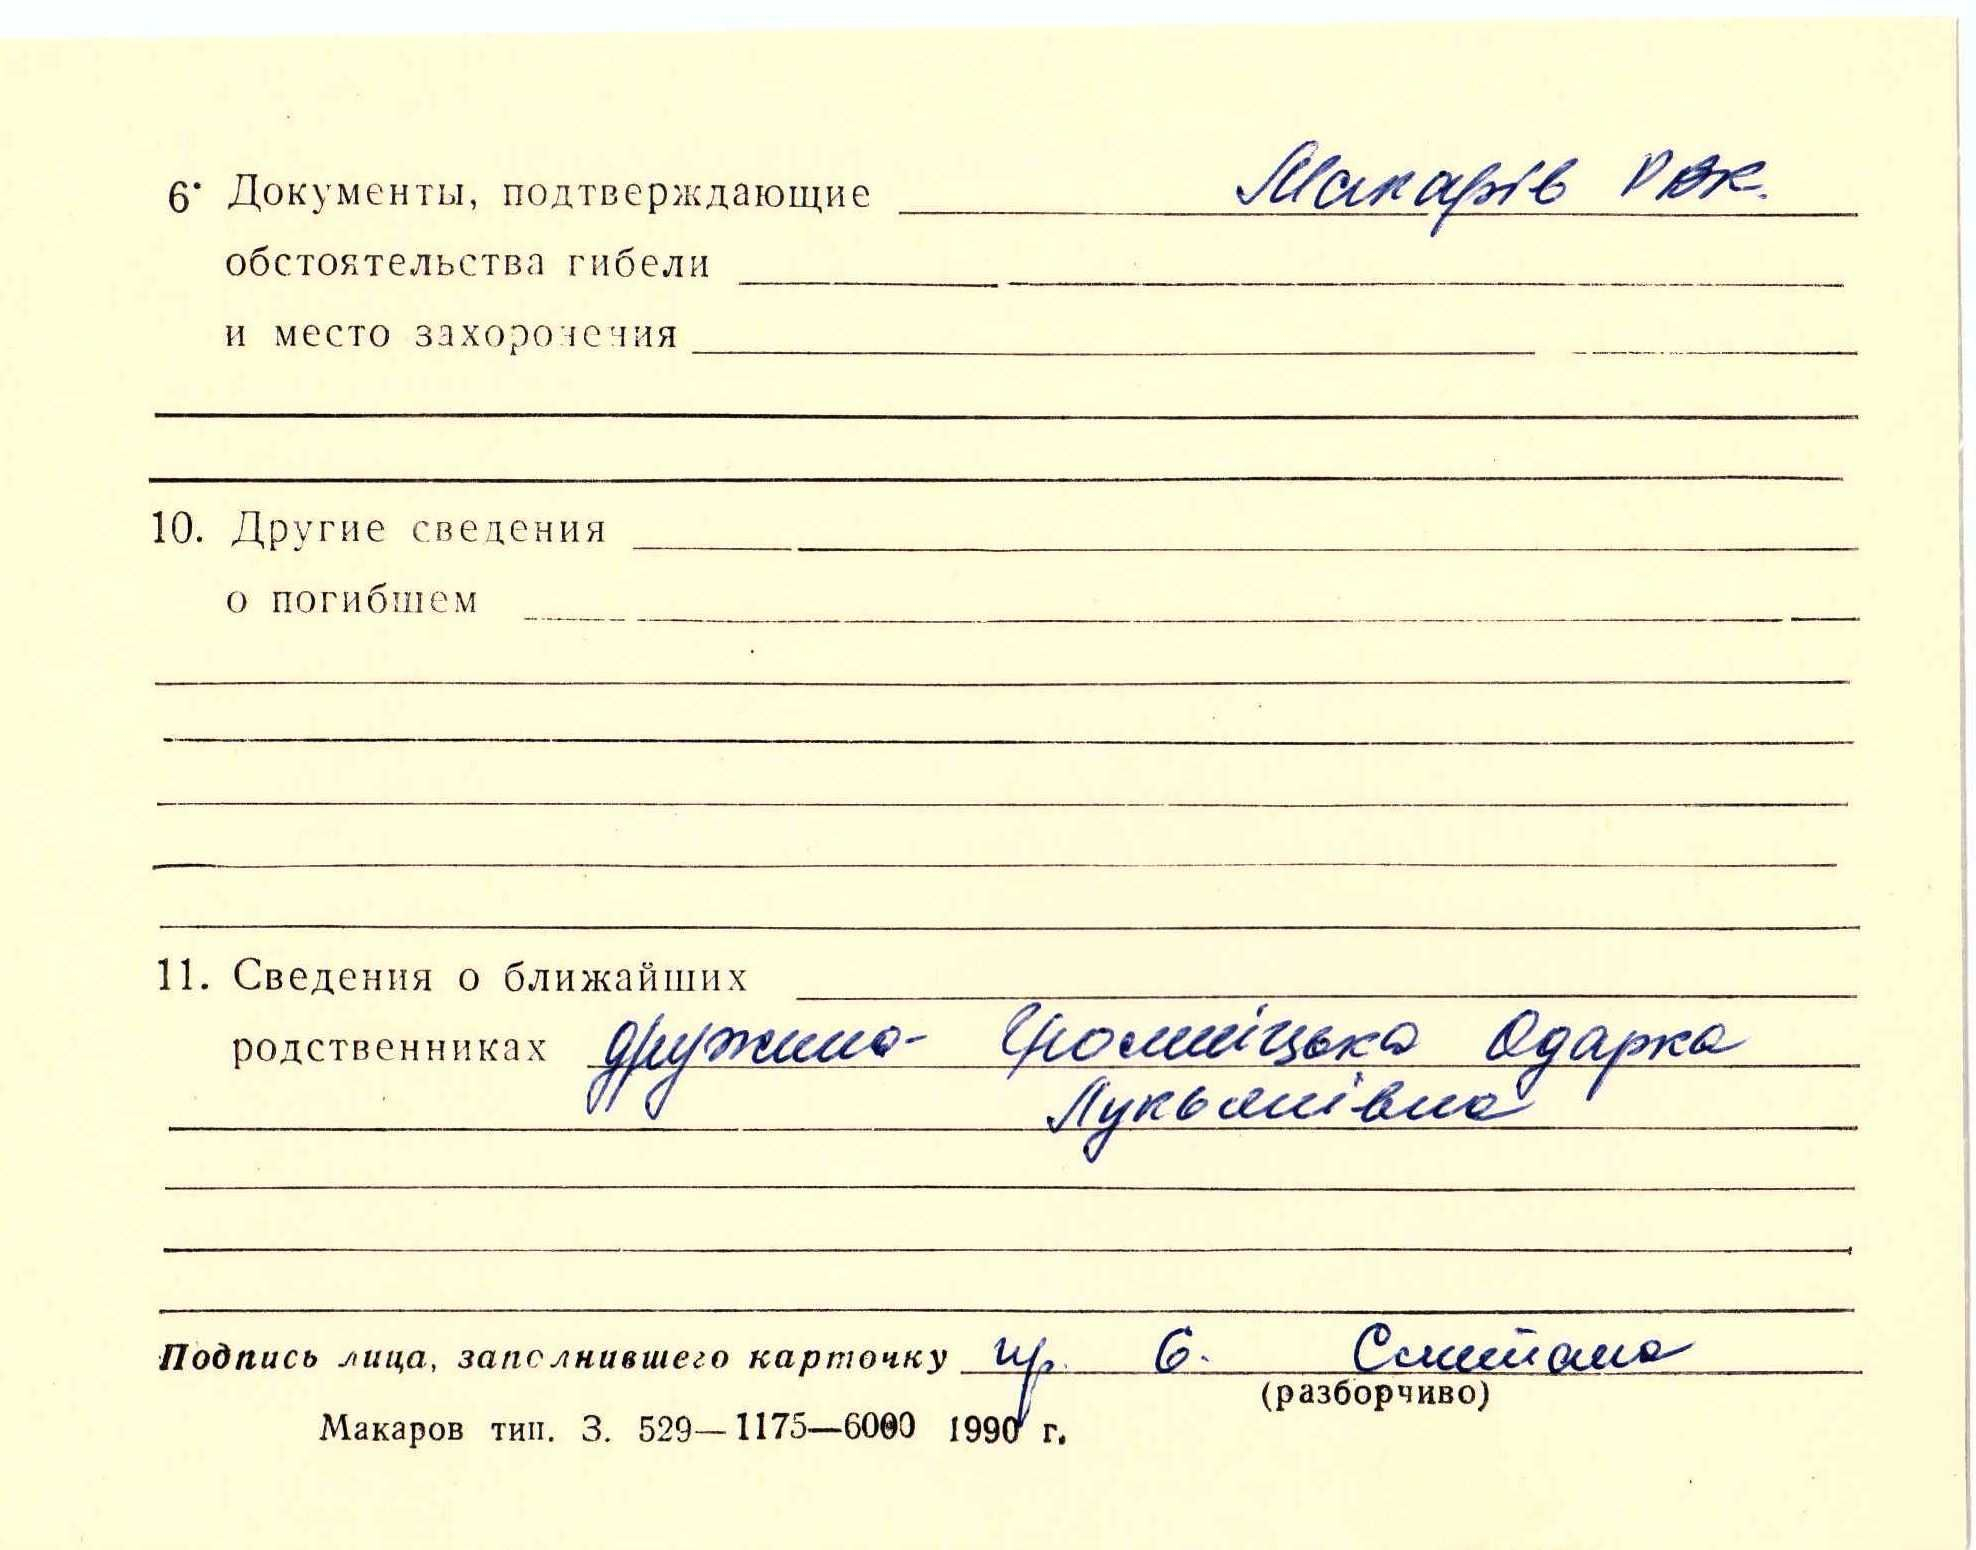 6. Документы, подтверждающие Макарів РВК.
обстоятельства гибели
и место захоронения
10. Другие сведения
о погибшем
11. Сведения о ближайших
родственниках дружина- Одарка
Лукьянівна
Подпись лица, заполнившего карточку Смитана
(разборчиво)
Макаров тип. З. 529—1175—6000 1990 г.